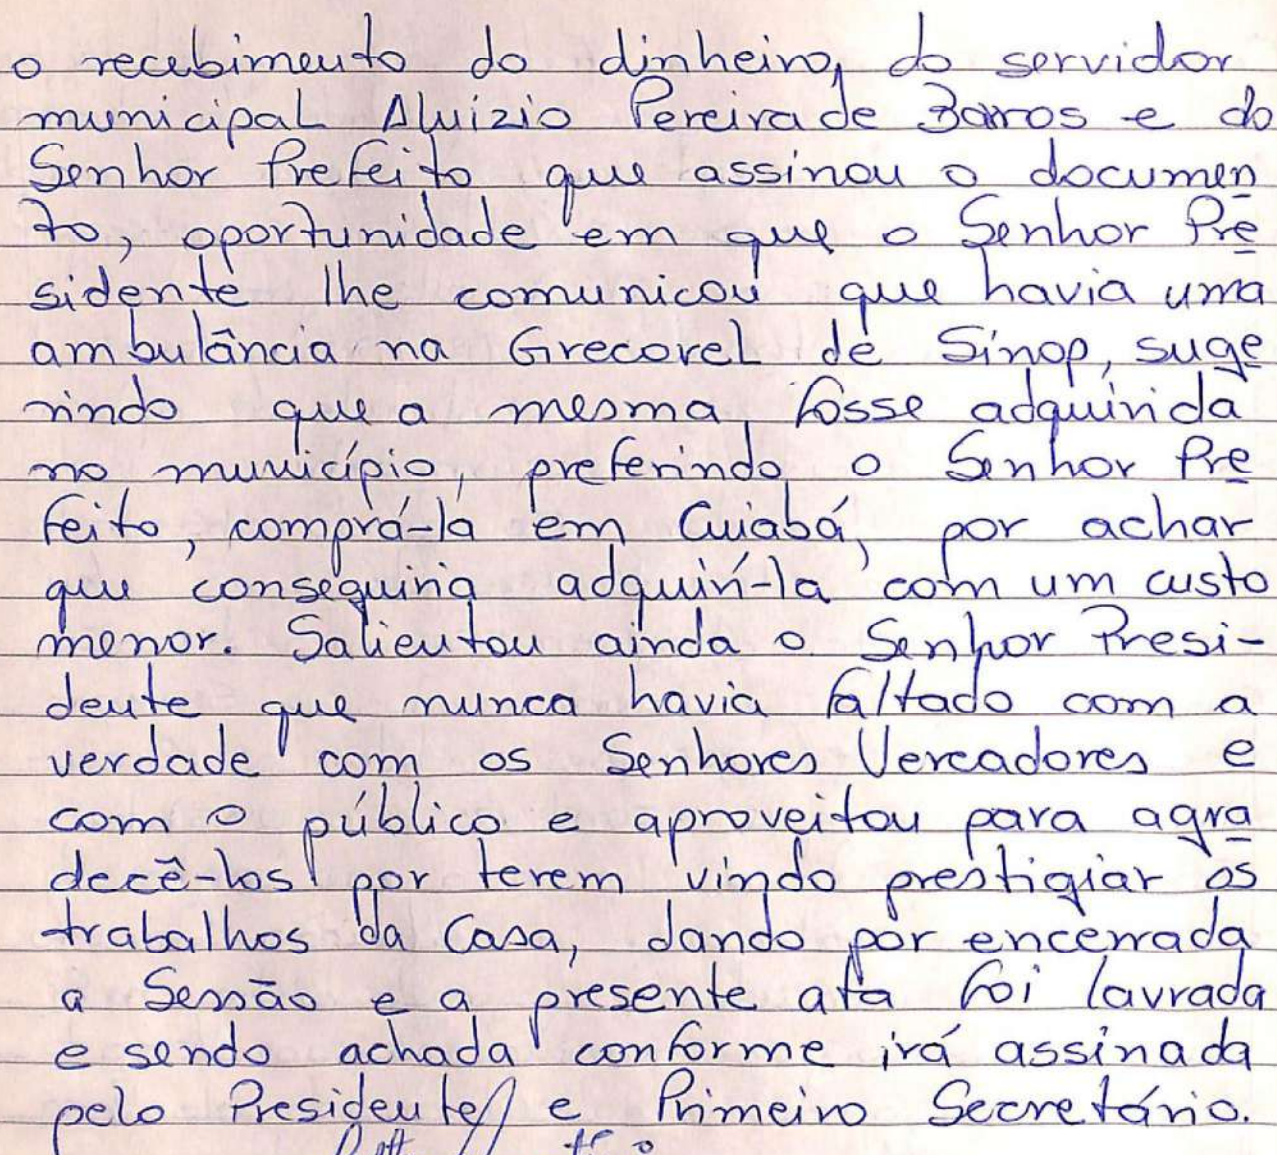 o recebimento do dinheiro, do servidor
municipal Aluízio Pereira de Barros e do
Senhor Prefeito que assinou o documen
to, oportunidade em que o Senhor Pre
sidente lhe comunicou que havia uma
ambulância na Grecovel de Sinop, suge
rindo que a mesma fosse adquirida
no município, preferindo o Senhor Pre
feito, comprá-la em Cuiabá, por achar
que conseguiria adquirí-la com um custo
menor. Salientou ainda o Senhor Presi-
dente que nunca havia faltado com a
verdade com os Senhores Vereadores e
com o público e aproveitou para agra
decê-los por terem vindo prestigiar os
trabalhos da Casa, dando por encerrada
a Sessão e a presente ata foi lavrada
e sendo achada conforme irá assinada
pelo Presidente e Primeiro Secretário.